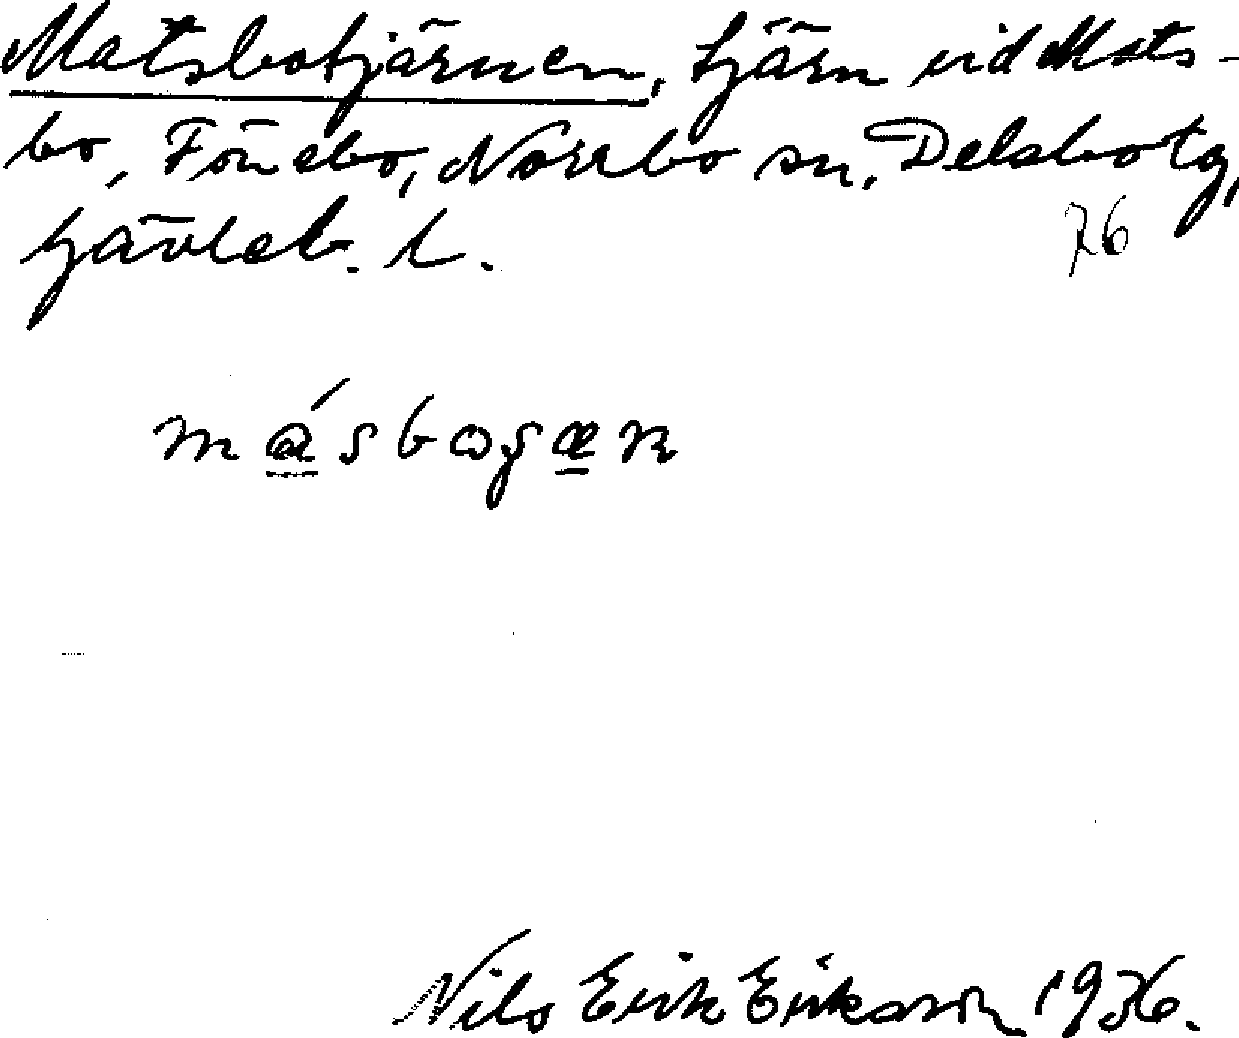 Matsbotjärnen, tjärn vid Mats-
bo, Fönebo, Norrbo sn, Delsbo tg,
Gävleb. l.
76
Nils Erik Eriksson 1936.